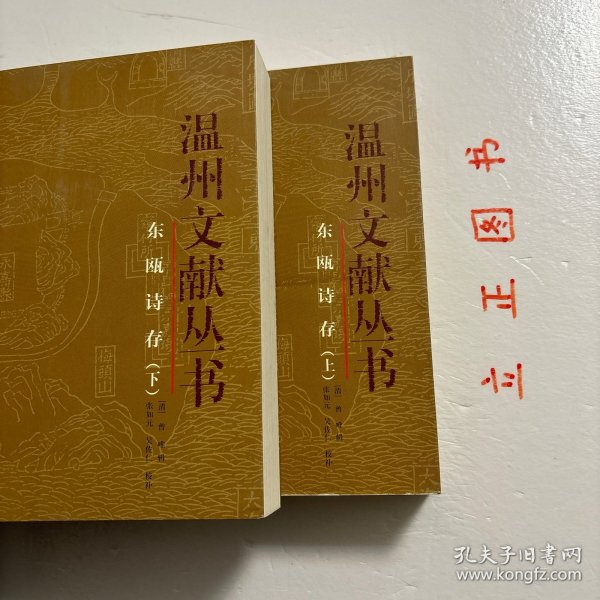 温州文献丛书
东瓯诗存（下）
〔清〕曾唯 辑
张如元 吴佐仁 校补
温州文献丛书
东瓯诗存（上）
〔清〕曾唯 辑
张如元 吴佐仁 校补
立正图书
梅頭山
孔夫子旧书网
www.kongfz.com